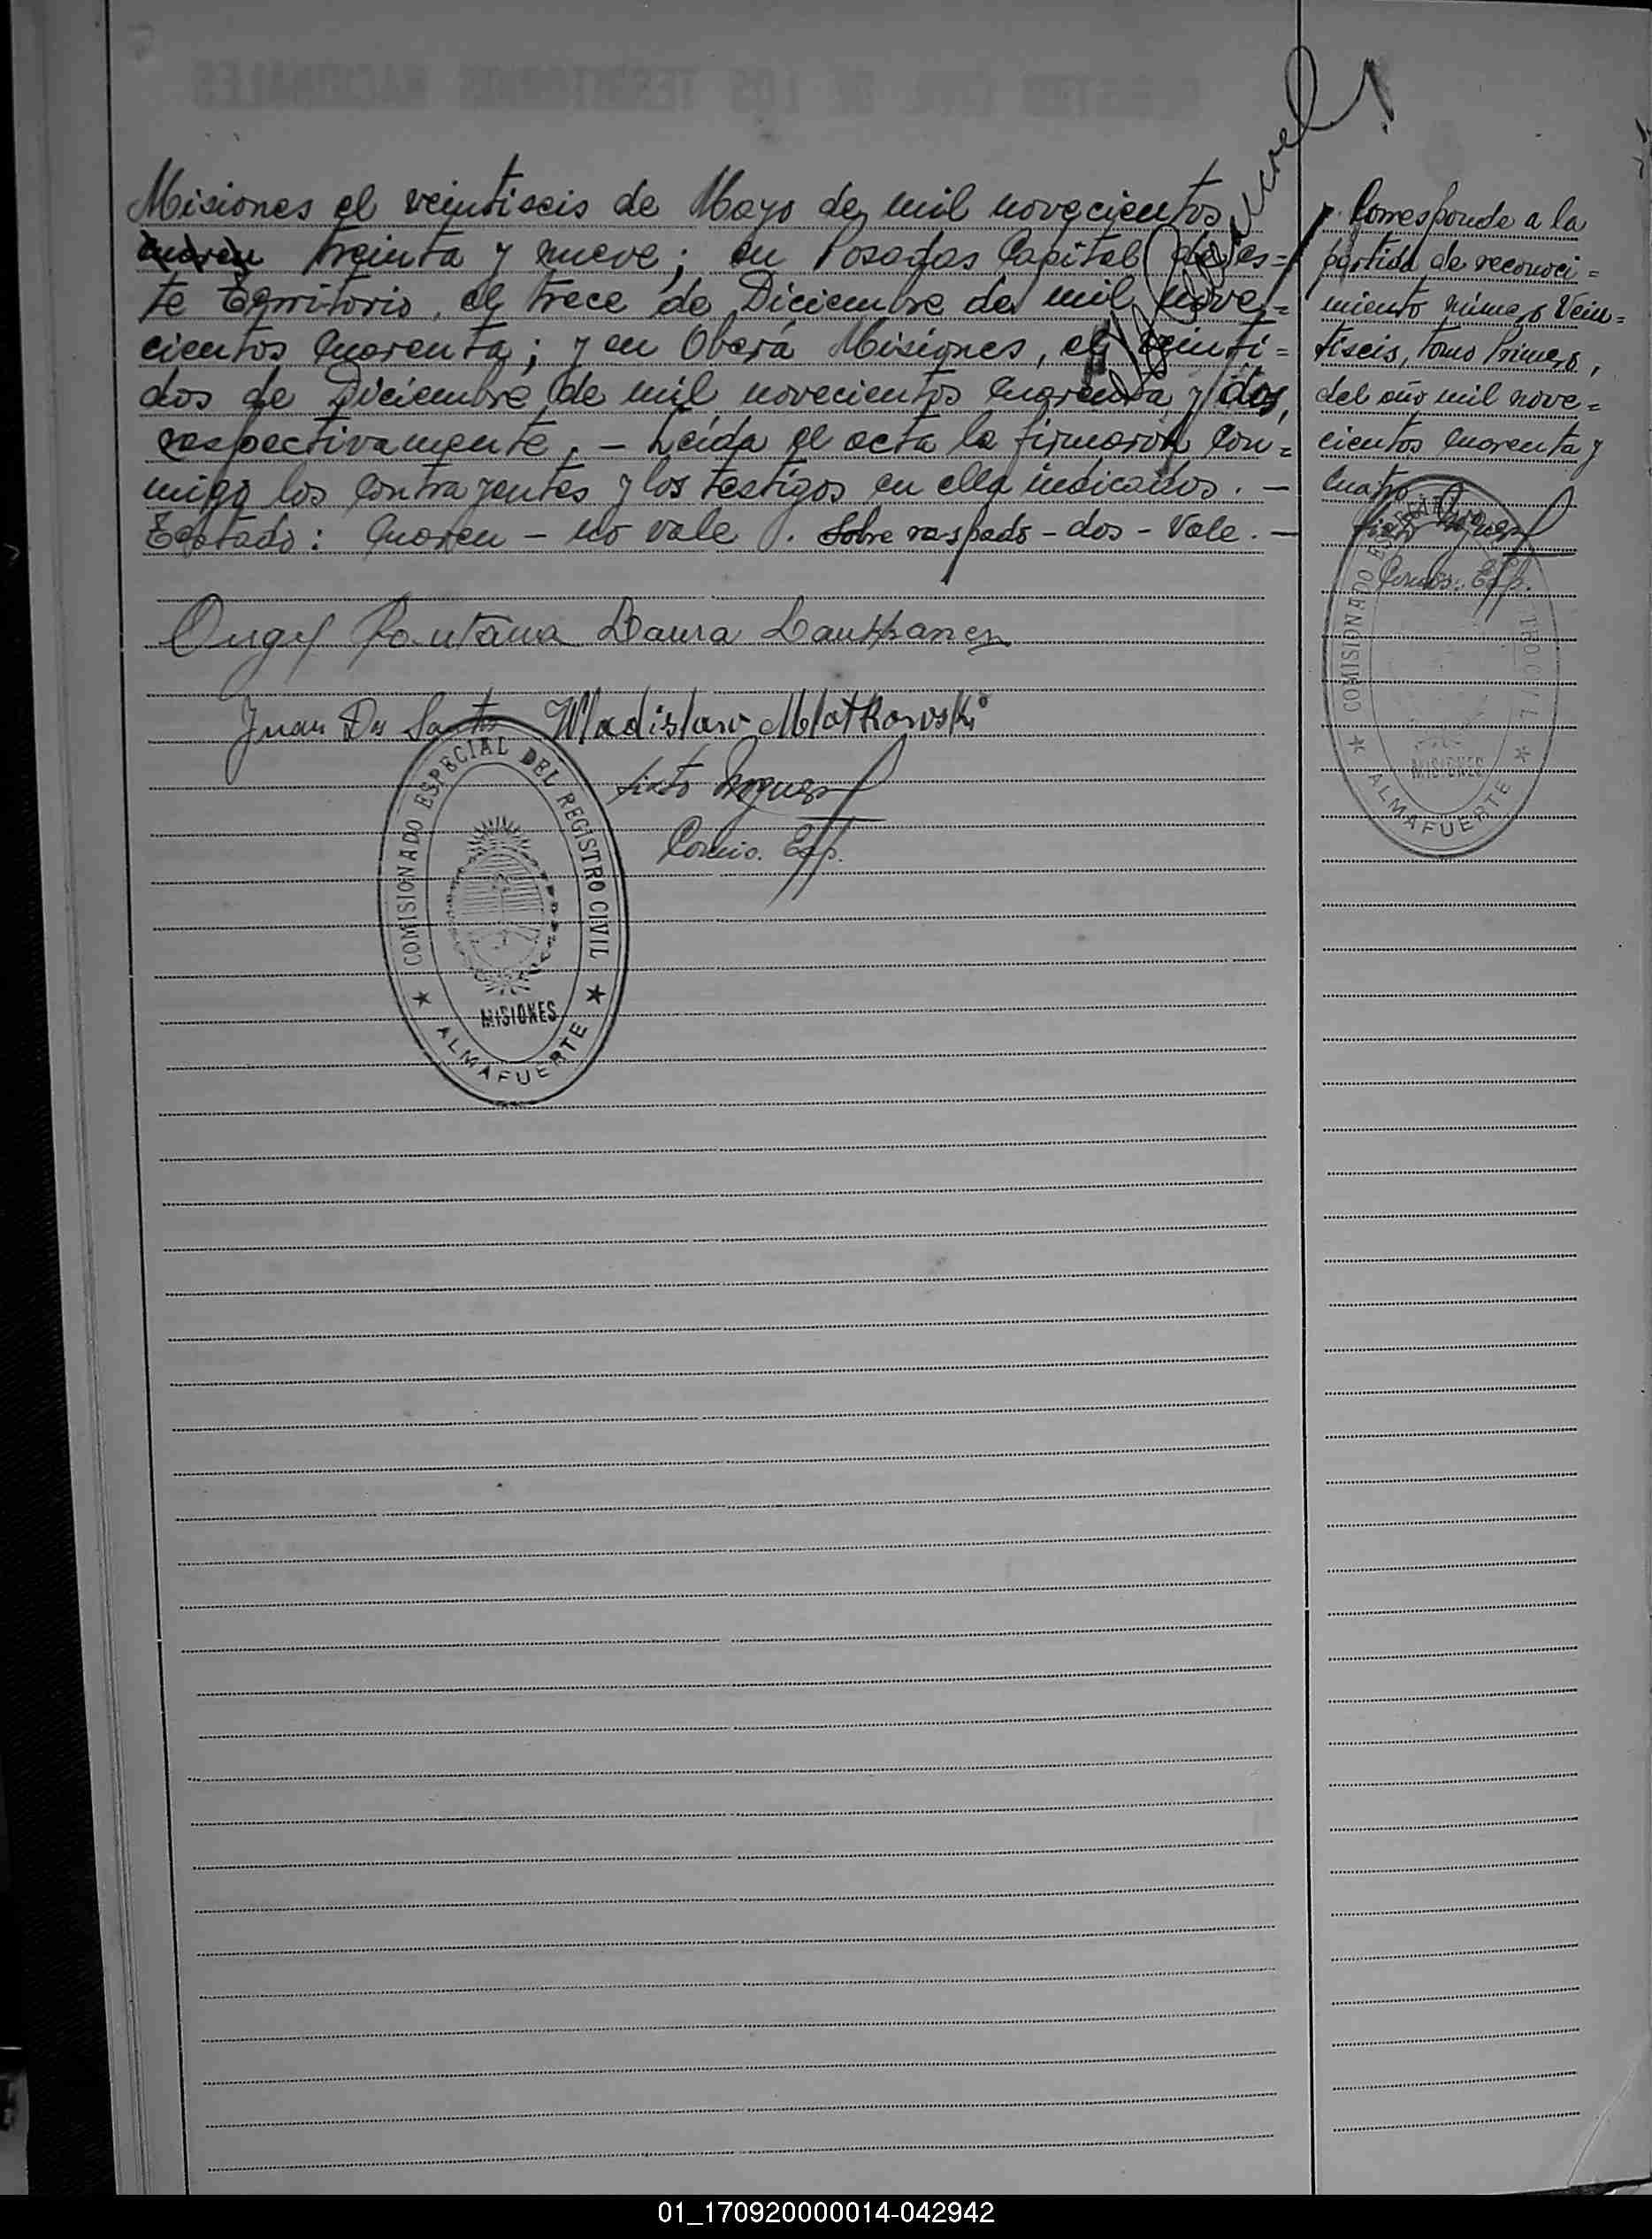 Misiones el veintiseis de Mayo de mil novecientos
cuaren treinta y nueve; en Posadas Capital de es=
te Territorio, el trece de Diciembre de mil nove=
cientos cuarenta; y en Oberá Misiones, el veinti=
dos de Diciembre de mil novecientos cuarenta y dos,
respectivamente. - Leída el acta la firmaron con=
migo los contrayentes y los testigos en ella indicados. -
Testado: cuaren - no vale. Sobre raspado - dos - Vale. -
Laura
Juan Dos Santos Wladislaw Mlotkowski
Sixto
Comis. Esp.
COMISIONADO ESPECIAL DEL REGISTRO CIVIL
MISIONES
★ ALMAFUERTE ★
Corresponde a la
partida de reconoci=
miento número Vein=
tiseis, tomo Primero,
del año mil nove=
cientos cuarenta y
cuatro
Sixto
Comis. Esp.
COMISIONADO
MISIONES
★ ALMAFUERTE ★
01_170920000014-042942